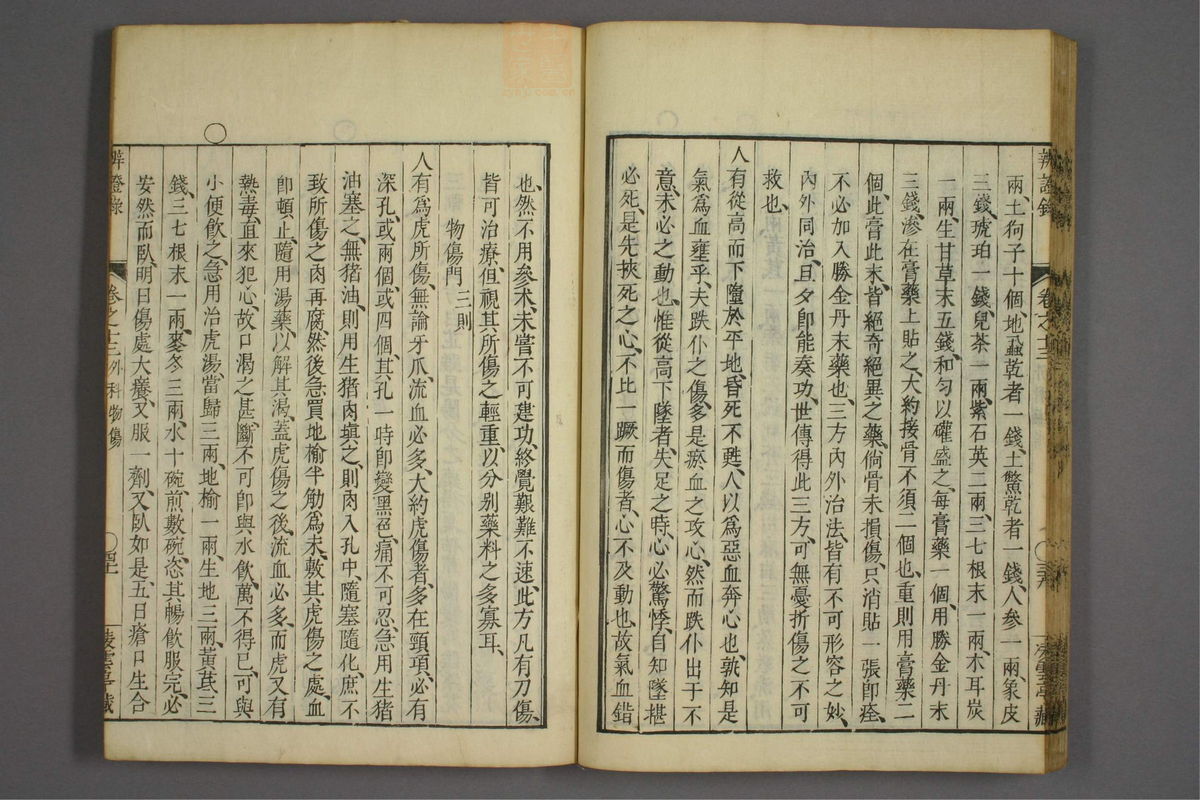 兩土狗子十個地虱乾者一錢土鱉乾者一錢人參一兩象皮
三錢琥珀一錢兒茶一兩紫石英二兩三七根末一兩木耳炭
一兩生甘草末五錢和勻以罐盛之每膏藥一個用勝金丹末
三錢滲在膏藥上貼之大約接骨不須二個也重則用膏藥二
個此膏此末皆絕奇絕異之藥倘骨未損傷只消貼一張卽痊
不必加入勝金丹末藥也三方內外治法皆有不可形容之妙
內外同治旦夕卽能奏功世傳得此三方可無憂折傷之不可
救也
人有從高而下墮於平地昏死不甦人以爲惡血奔心也孰知是
氣爲血壅乎夫跌仆之傷多是瘀血之攻心然而跌仆出于不
意未必心之動也惟從高下墜者失足之時心必驚悸自知墜堪
必死是先挾死之心不比一蹶而傷者心不及動也故氣血錯
也然不用參朮未嘗不可建功終覺艱難不速此方凡有刀傷
皆可治療但視其所傷之輕重以分别藥料之多寡耳
物傷門 三則
人有爲虎所傷無論牙爪流血必多大約虎傷者多在頸項必有
深孔或兩個或四個其孔一時卽變黑色痛不可忍急用生猪
油塞之無猪油則用生猪肉填之則肉入孔中隨塞隨化庶不
致所傷之肉再腐然後急買地榆半觔爲末敷其虎傷之處血
卽頓止隨用湯藥以解其渴蓋虎傷之後流血必多而虎又有
熱毒直來犯心故口渴之甚斷不可卽與水飲萬不得已可與
小便飲之急用治虎湯當歸三兩地榆一兩生地三兩黃芪三
錢三七根末一兩麥冬三兩水十碗煎數碗恣其暢飲服完必
安然而臥明日傷處大癢又服一劑又臥如是五日瘡口生合
辨證錄 卷之十三外科物傷